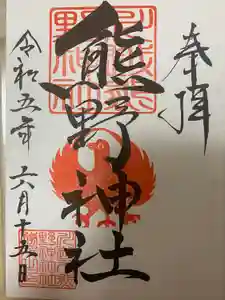 奉拝
熊野神社
令和五年
六月十五日